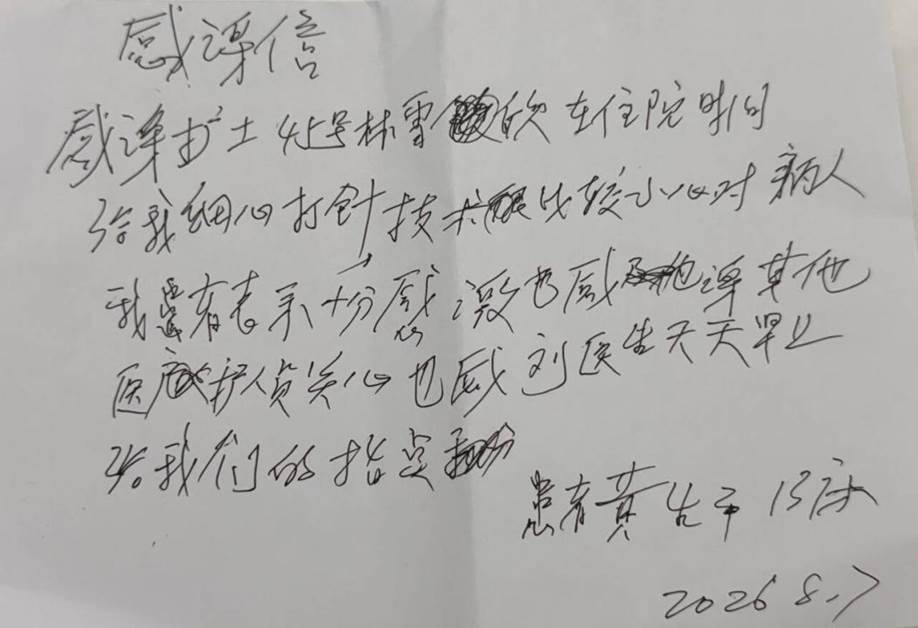 感谢信
感谢护士45号林雪欣在住院时间
给我细心打针技术比较小心对病人
我患者表示十分感激也感谢其他
医护人员关心也感刘医生天天早上
给我们的指点
患者黄 13床
2026 8.7